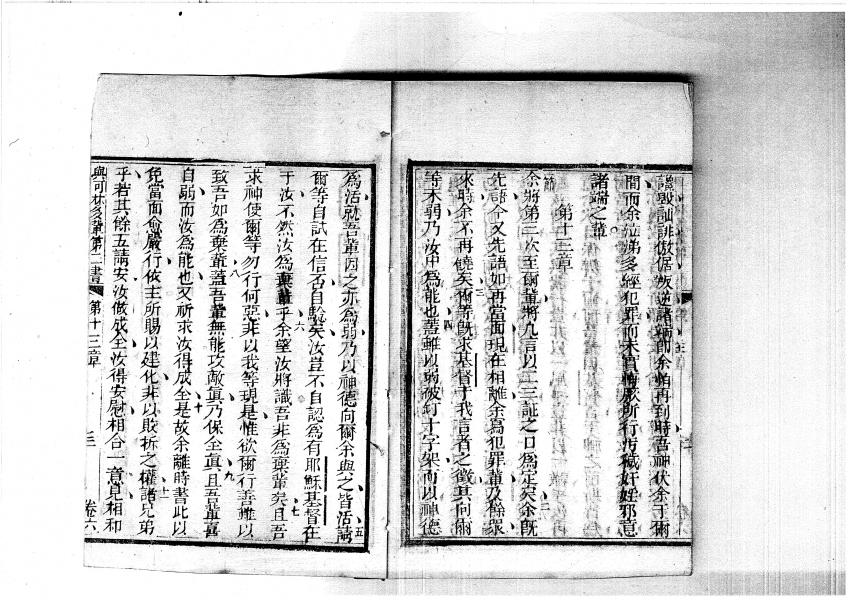 譖毀訕誹傲倨叛逆諸端即余頻再到時吾神伏余于爾
間而余泣娣多經犯罪而未實悔厥所行污穢奸婬邪意
諸端之輩
第十三章
余將第三次至爾輩將凡言以二三証之口為定矣余既
先語今又先語如再當面現在相離余寫犯罪輩及餘眾
來時余不再饒矣爾等既求基督于我言者之徵其向爾
等未弱乃汝中為能也蓋雖以弱被釘十字架而以神德
為活就吾輩因之亦為弱乃以神德向爾余與之皆活請
爾等自試在信否自驗矣汝豈不自認為有耶穌基督在
于汝不然汝為棄輩乎余望汝將識吾非為棄輩矣且吾
求神使爾等勿行何惡非以我等現是惟欲爾行善雖以
致吾如為棄輩蓋吾輩無能攻敵真乃保全真且吾輩喜
自弱而汝為能也又祈求汝得成全是故余離時書此以
免當面愈嚴行依主所賜以建化非以敗拆之權諸兄弟
乎若其餘五請安汝做成全汝得安慰相合一意見相和
與可林多輩第二書 第十三章 三 卷六